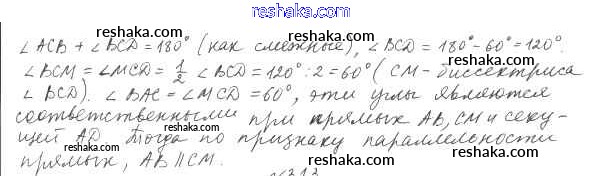 reshaka.com
∠ACB + ∠BCD = 180° (как смежные), ∠BCD = 180° - 60° = 120°.
reshaka.com reshaka.com
∠BCM = ∠MCD = 1/2 ∠BCD = 120° : 2 = 60° (CM - биссектриса
reshaka.com
∠BCD). ∠BAC = ∠MCD = 60°, эти углы являются
reshaka.com reshaka.com
соответственными при прямых AB, CM и секу-
reshaka.com
щей AD. Тогда по признаку параллельности
reshaka.com reshaka.com
прямых, AB ∥ CM.